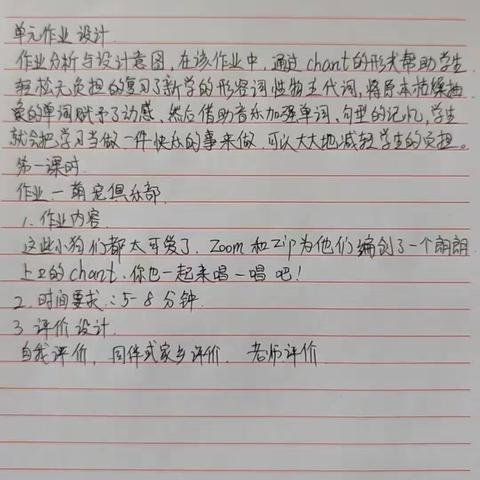 单元作业设计
作业分析与设计意图,在该作业中,通过chant的形式帮助学生
轻松无负担的复习了新学的形容词性物主代词,将原本枯燥抽
象的单词赋予了动感,然后借助音乐加强单词,句型的记忆,学生
就会把学习当做一件快乐的事来做,可以大大地减轻学生的负担。
第一课时
作业一萌宠俱乐部
1.作业内容
这些小狗们都太可爱了,Zoom和Zip为他们编创了一个朗朗
上口的chant.你也一起来唱一唱吧!
2.时间要求:5-8分钟.
3.评价设计.
自我评价,同伴或家长评价.老师评价